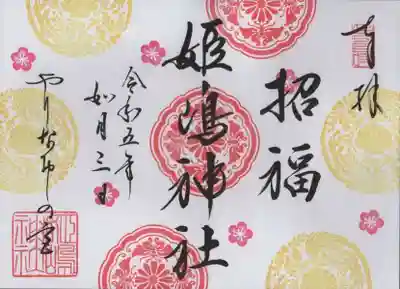 奉拝
招福
姫嶋神社
令和五年
如月三日
やりなおしの宮